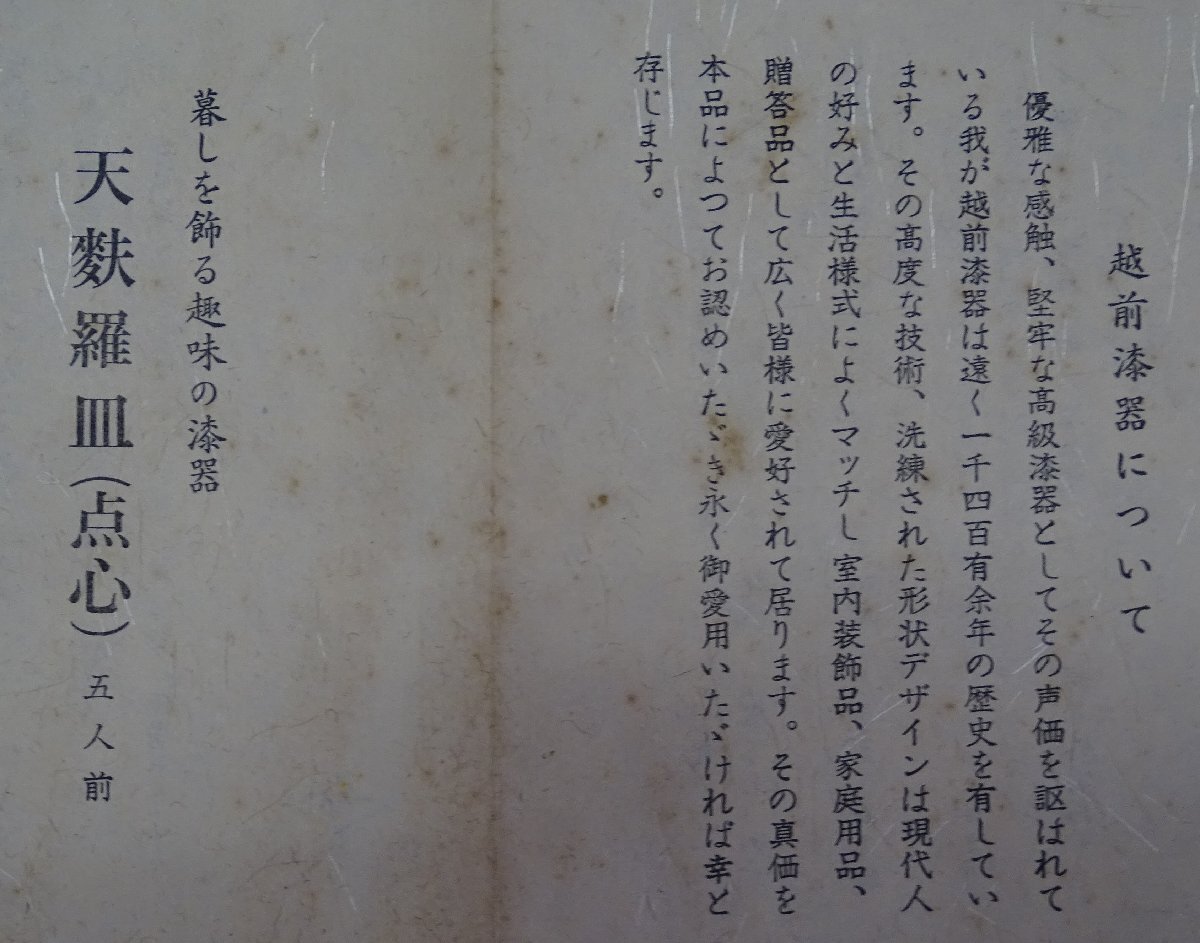 越前漆器について
優雅な感触、堅牢な高級漆器としてその声価を謳はれて
いる我が越前漆器は遠く一千四百有余年の歴史を有してい
ます。その高度な技術、洗練された形状デザインは現代人
の好みと生活様式によくマッチし室内装飾品、家庭用品、
贈答品として広く皆様に愛好されて居ります。その真価を
本品によつてお認めいたゞき永く御愛用いたゞければ幸と
存じます。
暮しを飾る趣味の漆器
天麩羅皿(点心) 五人前